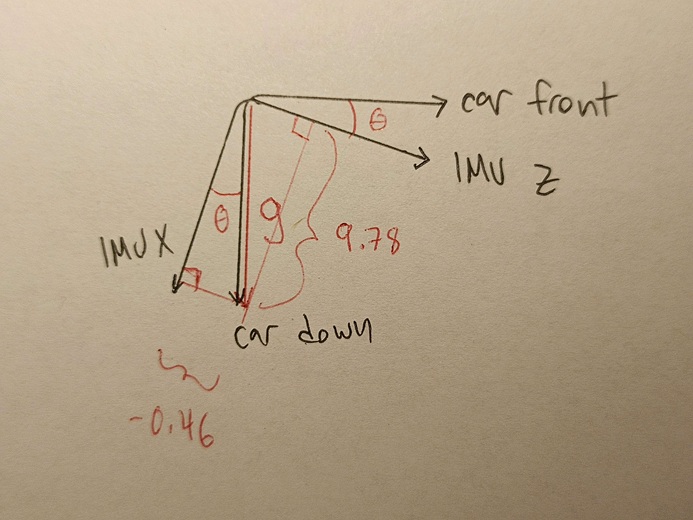 car front
θ
IMU Z
θ
g
9.78
IMU X
car down
-0.46